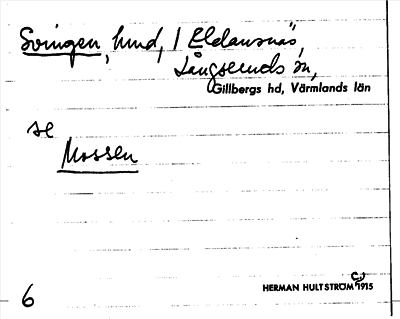 Svingen, hmd, / Eldansnäs,
Långseruds sn,
Gillbergs hd, Värmlands län
se
Mossen
6
HERMAN HULTSTRÖM C:a 1915